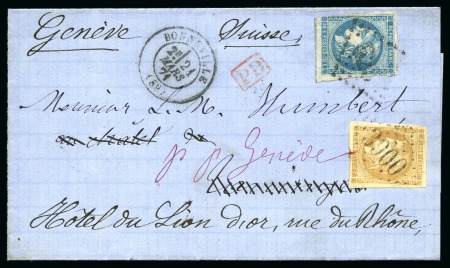 Genève Suisse
BONNEVILLE
21
MARS
71
(89)
PD
Monsieur L. M. Humbert
p p Genève
Hotel du Lion d'or, rue du Rhône,